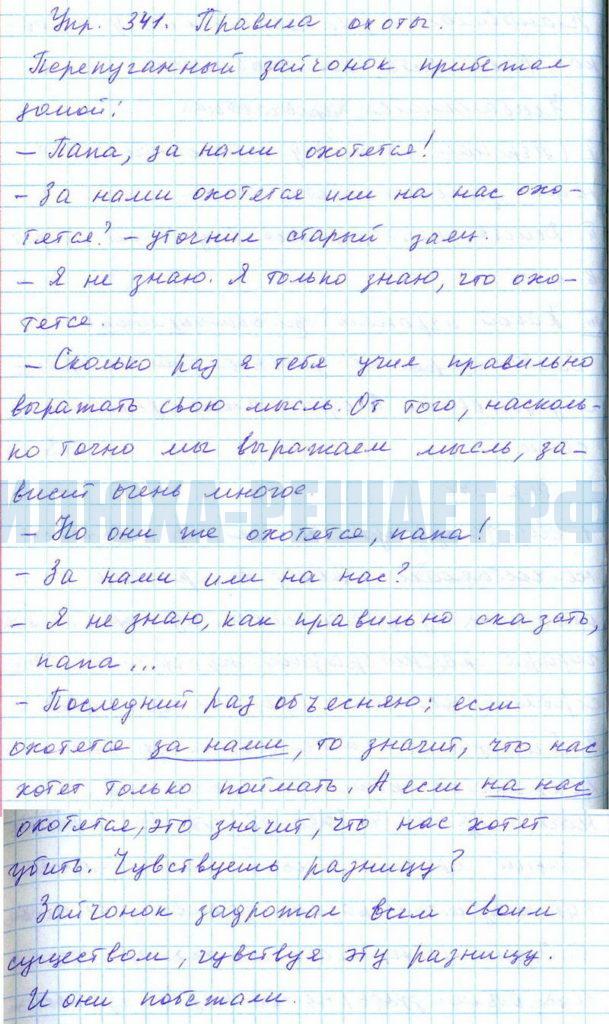 Упр. 341. Правила охоты.
Перепуганный зайчонок прибежал
домой:
– Папа, за нами охотятся!
– За нами охотятся или на нас охо-
тятся? – уточнил старый заяц.
– Я не знаю. Я только знаю, что охо-
тятся.
– Сколько раз я тебя учил правильно
выражать свою мысль. От того, насколь-
ко точно мы выражаем мысль, за-
висит очень многое
– Но они же охотятся, папа!
– За нами или на нас?
– Я не знаю, как правильно сказать,
папа...
– Последний раз объесняю; если
охотятся за нами, то значит, что нас
хотят только поймать. А если на нас
охотятся, это значит, что нас хотят
убить. Чувствуешь разницу?
Зайчонок задрожал всем своим
существом, чувствуя эту разницу.
И они побежали.